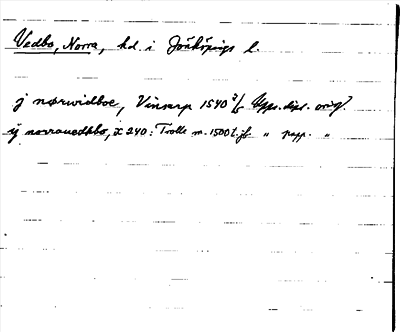 Vedbo, Norra, hd. i Jönköpings l.
j norwidboe, Vinnarp 1540 3/5 Upps. dipl. orig.
ij norrauedhbo, X 240: Trolle m. 1500 t. jb " papp. "